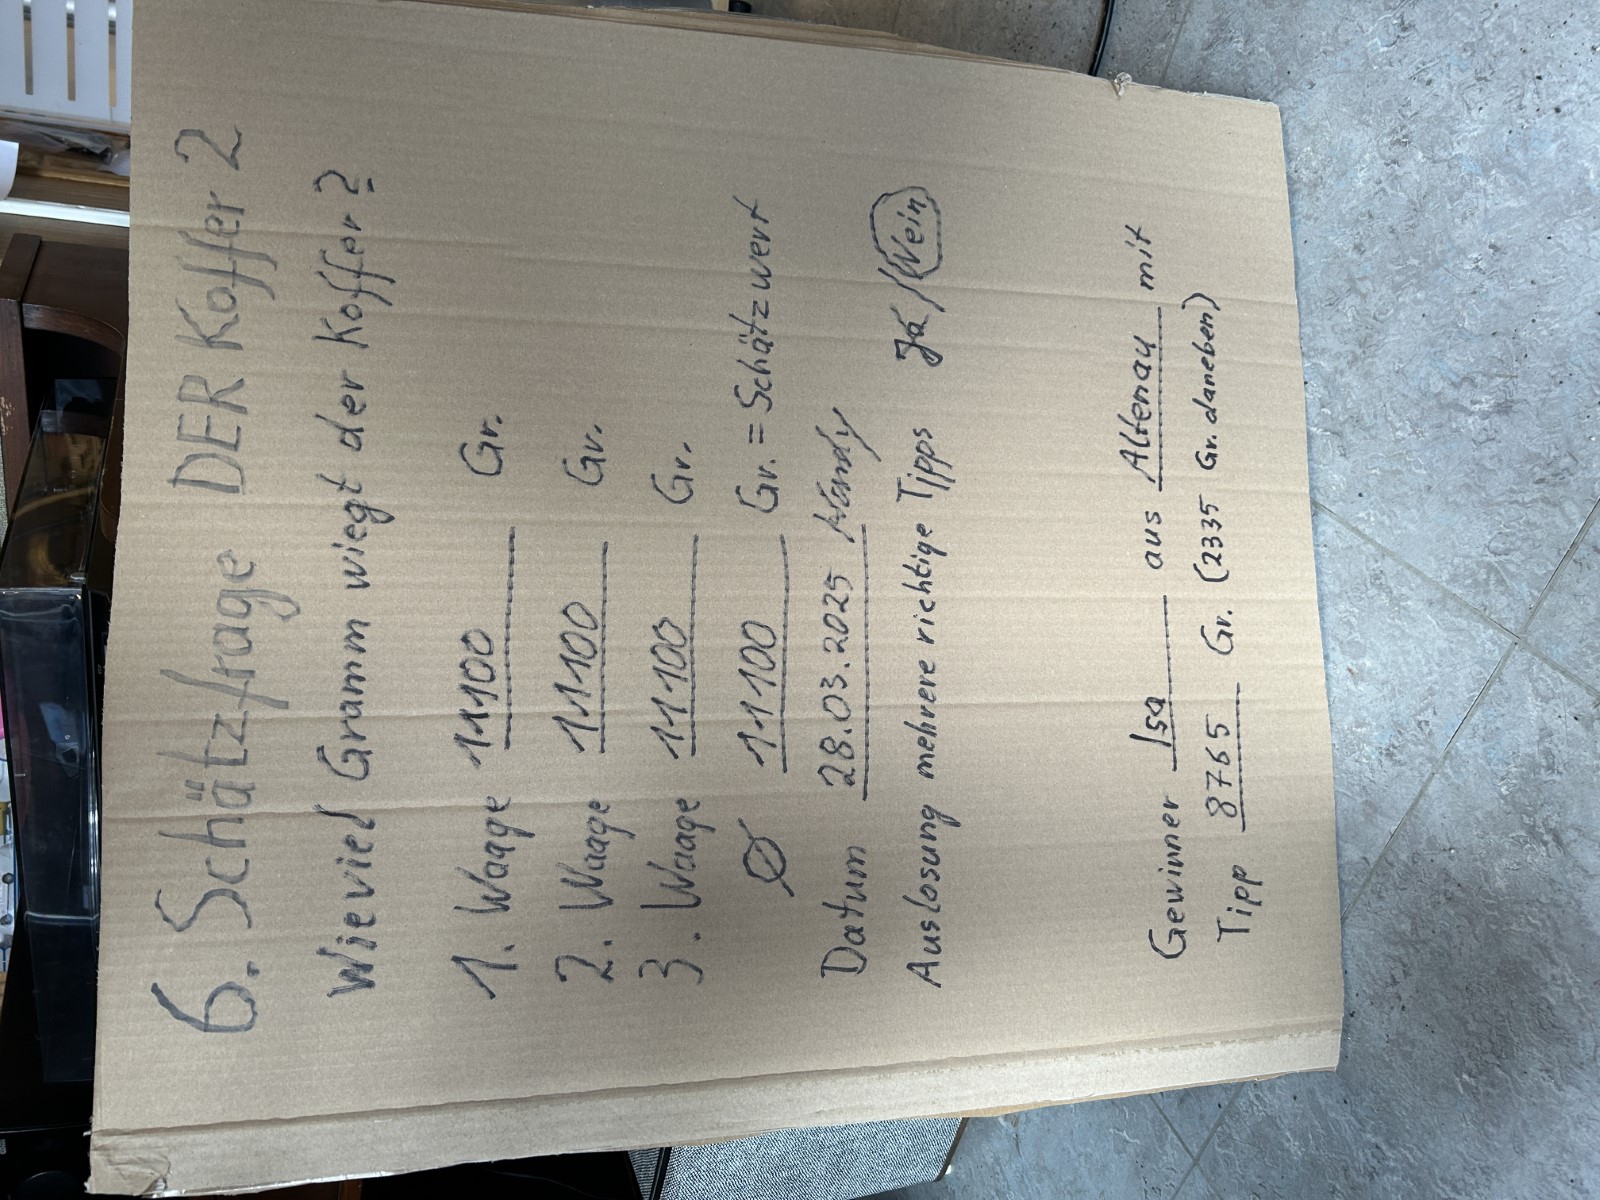 6. Schätzfrage DER Koffer 2
Wieviel Gramm wiegt der Koffer?
1. Waage 11100 Gr.
2. Waage 11100 Gr.
3. Waage 11100 Gr.
Ø 11100 Gr. = Schätzwert
Datum 28.03.2025
Auslosung mehrere richtige Tipps Ja / Nein
Gewinner Isa aus Altenau mit
Tipp 8765 Gr. (2335 Gr. daneben)